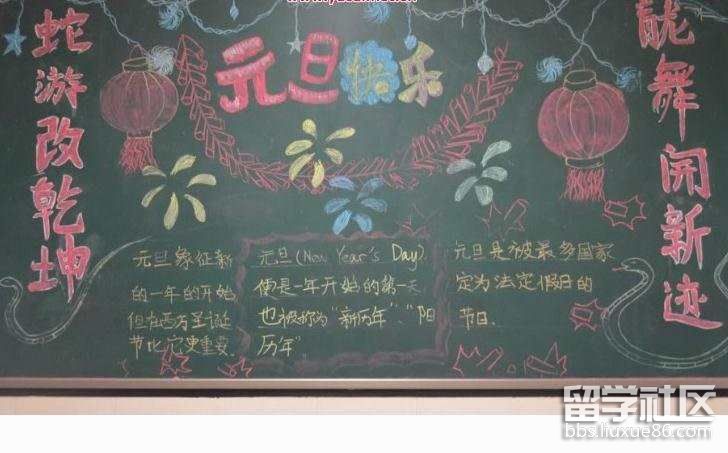 元旦快乐
蛇游改乾坤
龙舞开新迹
元旦象征新
的一年的开始
但在西方圣诞
节比它更重要.
元旦(New Year's Day).
便是一年开始的第一天
也被称为"新历年"、"阳
历年"
元旦是被最多国家
定为法定假日的
节日.
留学社区
bbs.liuxue86.com